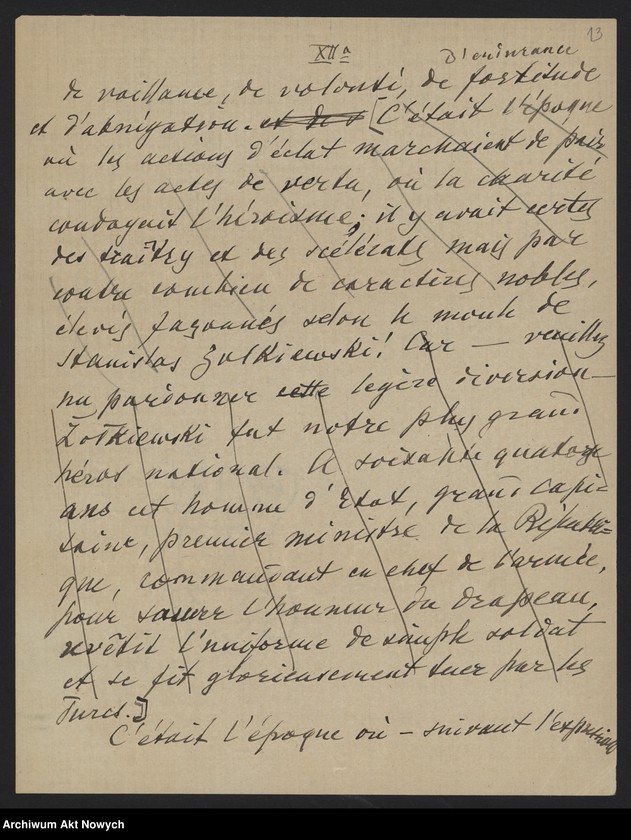 13
XIIa
D'endurance
de vaillance, de volonté, de fortitude
et d'abnégation. et de s [C'était l'époque
où les actions d'éclat marchaient de pair
avec les actes de vertu, où la charité
coudoyait l'héroïsme; il y avait certes
des traîtres et des scélérats mais par
contre combien de caractères nobles,
élevés façonnés selon le moule de
Stanislas Zolkiewski! Car — veuillez
me pardonner cette légère diversion —
Żołkiewski fut notre plus grand
héros national. A soixante quatorze
ans cet homme d'Etat, grand capi=
taine, premier ministre de la Républi=
que, commandant en chef de l'armée,
pour sauver l'honneur du drapeau,
revêtit l'uniforme de simple soldat
et se fit glorieusement tuer par les
Turcs.]
C'était l'époque où – suivant l'expression
Archiwum Akt Nowych